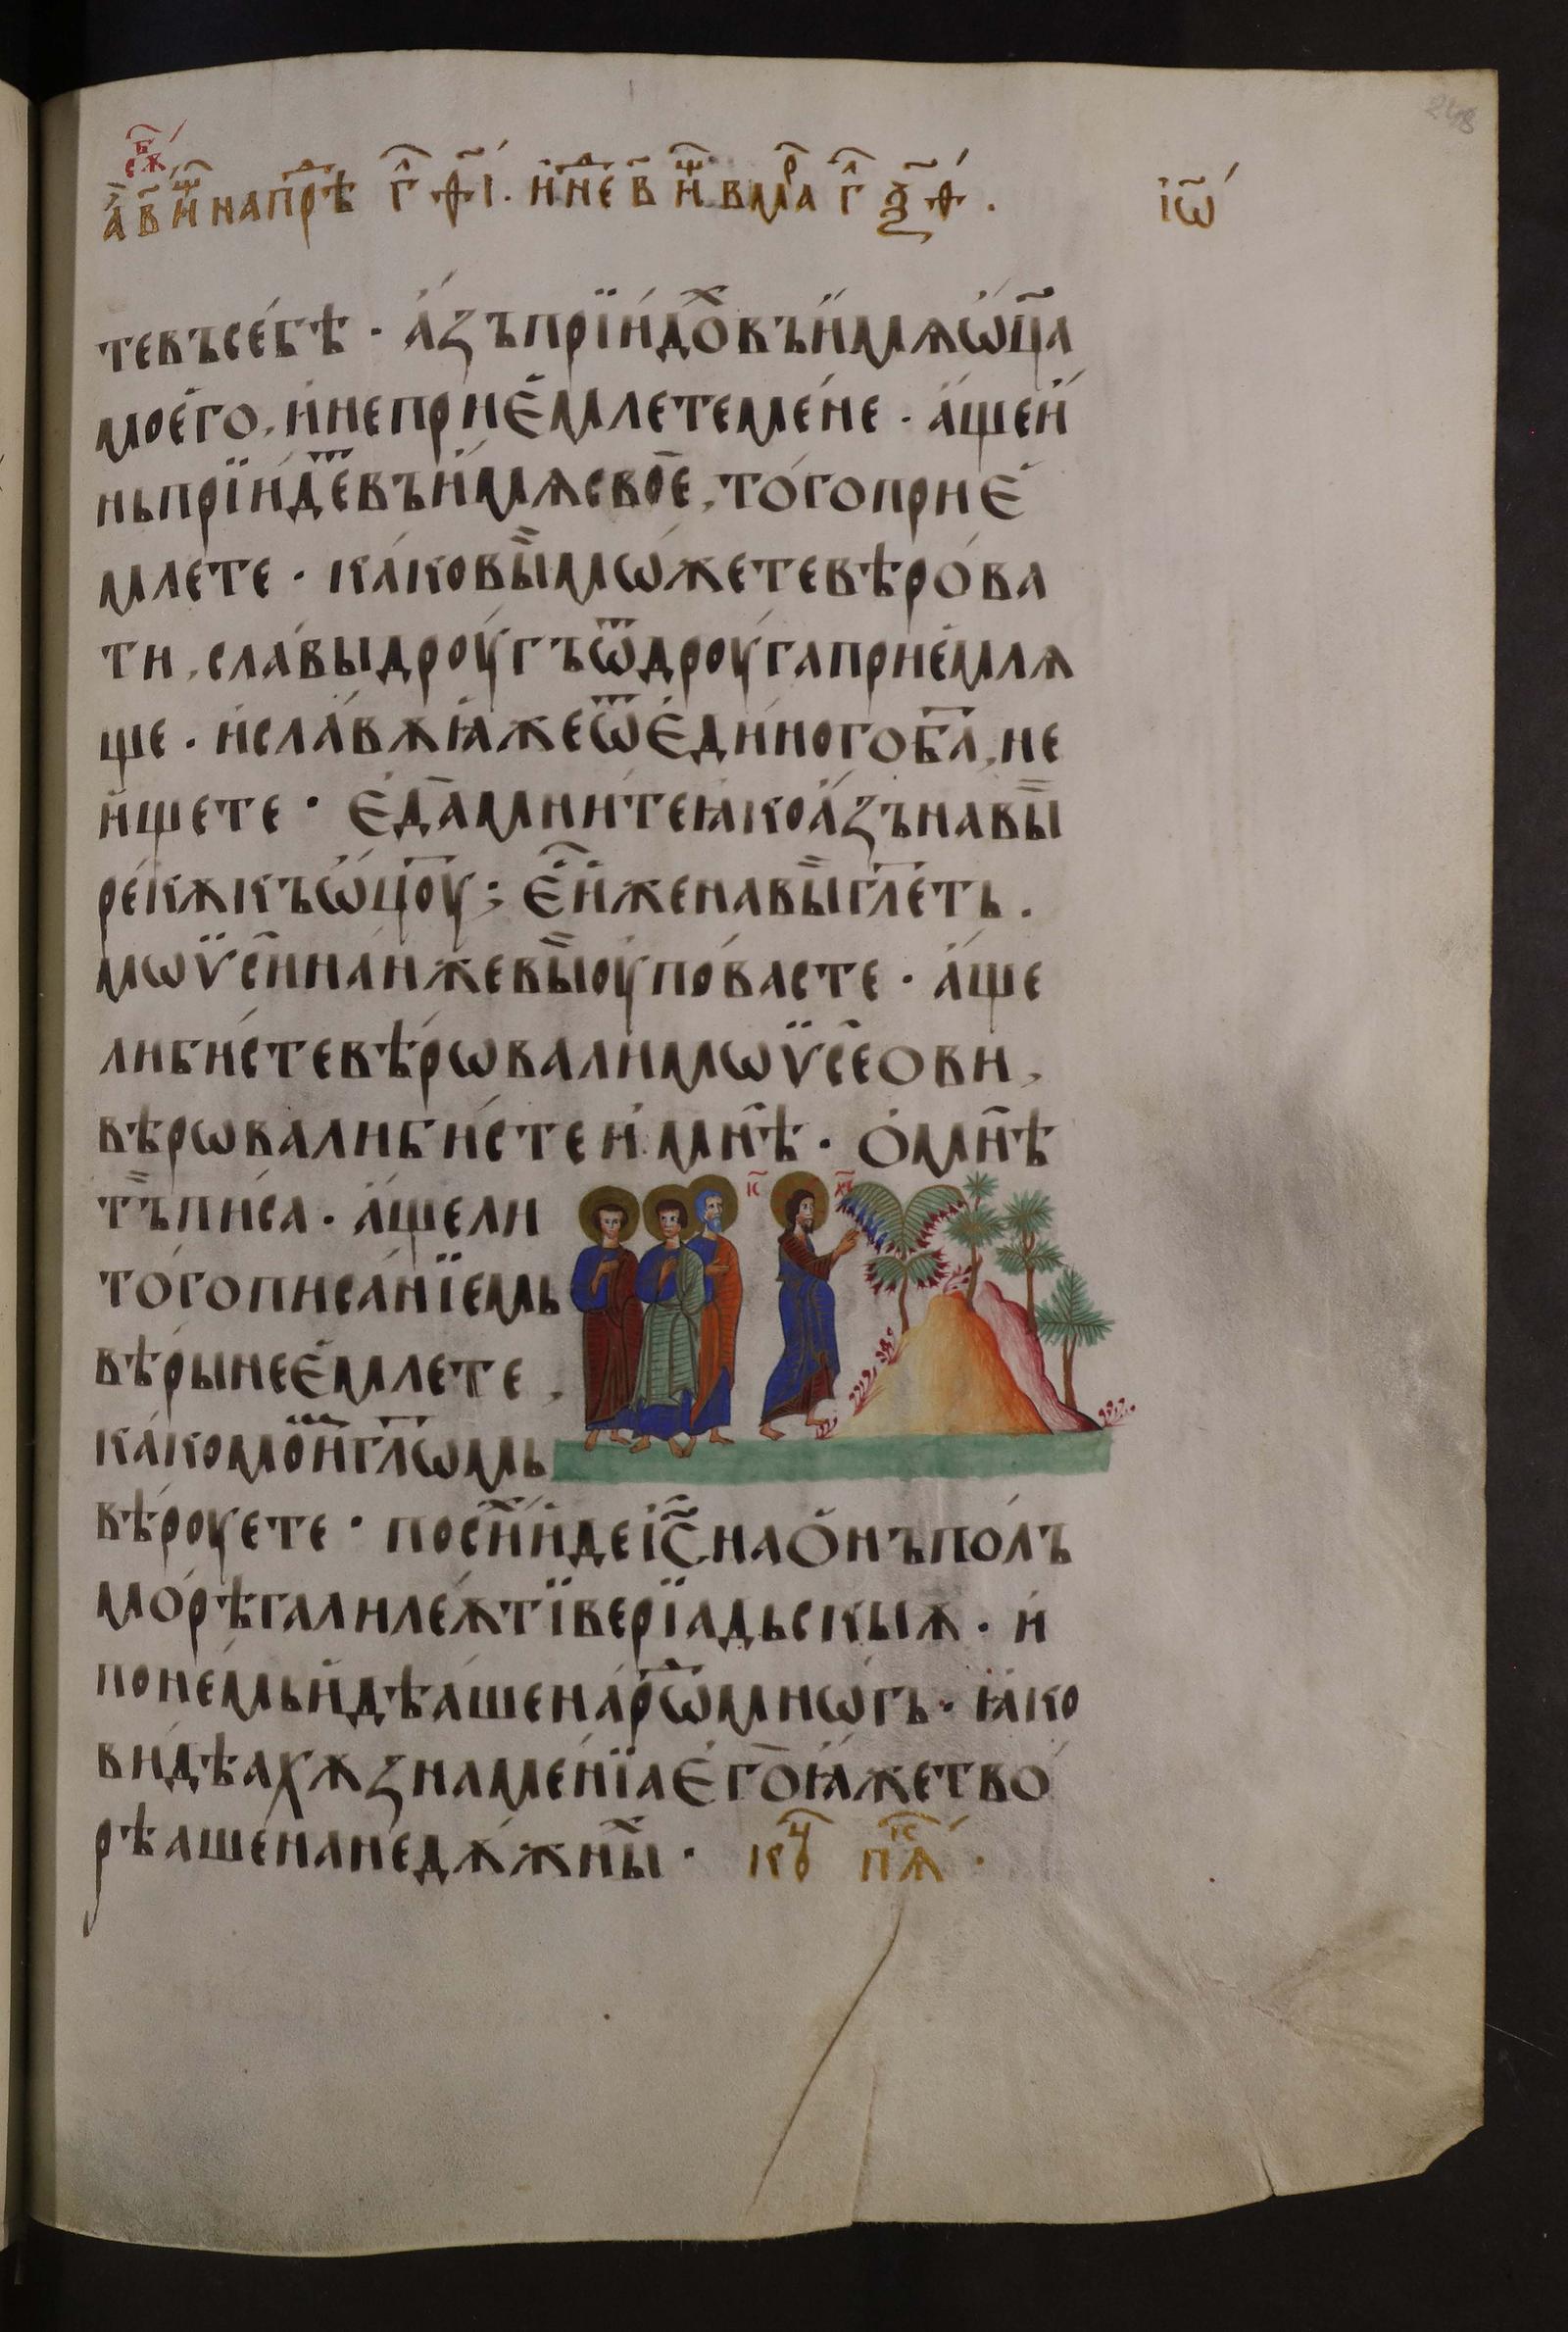 тевъсе́бѣ · а҆́зъпрїи́дох҃въи҆́мѧѡ҆ц҃а
моего̀, и҆неприе҆́млетемене · а҆́щеи҆
ньпрїи́де҃въи҆́мѧсвое̄, то́гоприе҆́
млете · ка́ковы̏мѡ́жетевѣ́рова
ти, сла́выдроу́гъѿдроу́гаприе́млѧ
ще · и҆сла́вѫꙗ҆́жеѿе҆ди́ногоб҃а, не
и҆́щете · е҆да̄мни́теꙗкоа҆́зънавы̏
рекѫкъѡ҆ц҃оу ; е҆́и҆женавы̏гл҃еть .
мѡѵ̈сѝина́нжевы̏оупо́васте · а҆́ще
либи́стевѣ́рѡвалимѡѵ̈се̄ови,
вѣ́рѡвалиби́стеи҆мн҃ѣ · ѻ҆мн҃ѣ
тъ̏пи́са · а҆́щели
того́писа́нїемь
вѣ́рынее҆́млете,
ка́комои҃гл҃ѡмь
вѣ́роуете · поси҃и҆́деіс҃наѻ҆́нъпо́лъ
мо́рѣгалиле́ѫтїверїа́дьскыѧ · и҆
поне́мьи҆дѣ́ашенарѡ҃мнѡ́гь · ꙗ҆́ко
ви́дѣахѫзнаме́нїае҆го̄ꙗ҆́жетво
рѣ́ашенанедѫ́жны҃ · 
іѡ҃
іс҃